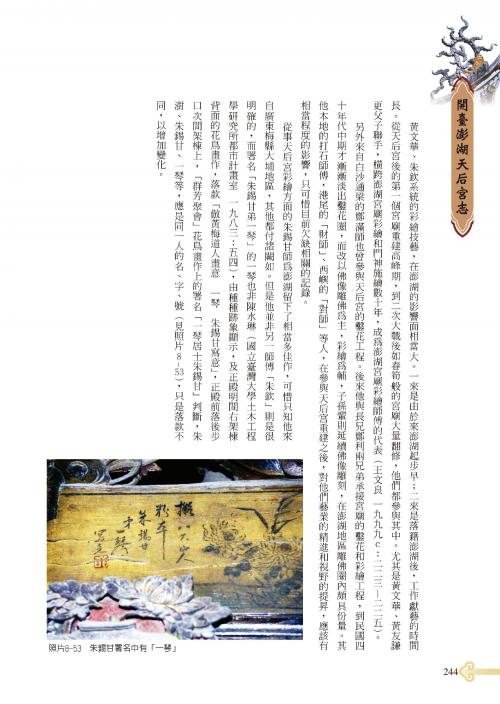 開臺澎湖天后宮志
黃文華、朱欽系統的彩繪技藝，在澎湖的影響面相當大。一來是由於來澎湖起步早；二來是落籍澎湖後，工作獻藝的時間
長。從天后宮後的第一個宮廟重建高峰期，到二次大戰後如春筍般的宮廟大量翻修，他們都參與其中。尤其是黃文華、黃友謙
更父子聯手，橫跨澎湖宮廟彩繪和門神施繪數十年，成為澎湖宮廟彩繪師傅的代表（王文良　一九九九c：二二三—二二五）。
另外來自白沙通梁的鄭滿師也曾參與天后宮的鑿花工程。後來他與長兄鄭利兩兄弟承接宮廟的鑿花和彩繪工程，到民國四
十年代中期才漸漸淡出鑿花圈，而改以佛像雕佛為主，彩繪為輔，子孫輩則延續佛像雕刻，在澎湖地區雕佛圈內頗具份量。其
他本地的打石師傅，港尾的「財師」、西嶼的「對師」等人，在參與天后宮重建之後，對他們藝業的精進和視野的提昇，應該有
相當程度的影響，只可惜目前欠缺相關的記錄。
從事天后宮彩繪方面的朱錫甘師為澎湖留下了相當多佳作，可惜只知他來
自廣東梅縣大埔地區，其他都付諸闕如。但是他並非另一師傅「朱欽」則是很
明確的，而署名「朱錫甘弟一琴」的一琴也非陳水琳（國立臺灣大學土木工程
學研究所都市計畫室　一九八三：五四），由種種跡象顯示，及正殿明間右架棟
背面的花鳥畫作，落款「倣黃梅道人畫意　一琴　朱錫甘寫意」，正殿前落後步
口次間架棟上，「群芳聚會」花鳥畫作上的署名「一琴居士朱錫甘」判斷，朱
澍、朱錫甘、一琴等，應是同一人的名、字、號（見照片8-53），只是落款不
同，以增加變化。
擬八大山人
朱錫甘
一琴
照片8-53　朱錫甘署名中有「一琴」
244